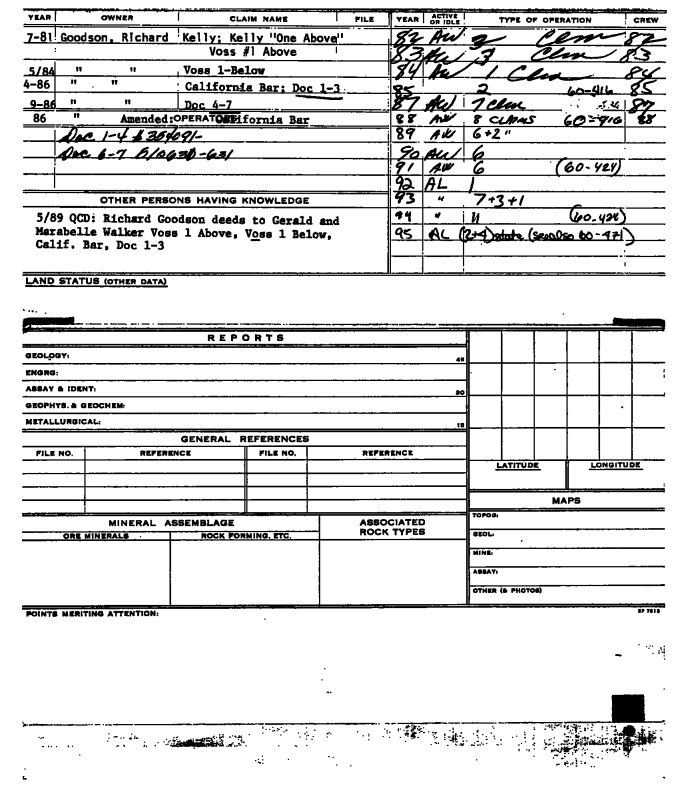 YEAR OWNER CLAIM NAME FILE YEAR ACTIVE OR IDLE TYPE OF OPERATION CREW
7-81 Goodson, Richard Kelly; Kelly "One Above" 82 AW 2 Clm 82
Voss #1 Above 83 AW 3 Clm 83
5/84 " " Voss 1-Below 84 AW 1 Clm 84
4-86 " " California Bar; Doc 1-3 85 2 60-416 85
9-86 " " Doc 4-7 87 AW 7 Clm 87
86 " Amended: California Bar 88 AW 8 CLAIMS 60-416 88
Doc 1-4 354091- 89 AW 6+2"
Doc 6-7 510630-631 90 AW 6
91 AW 6 (60-424)
92 AL 1
OTHER PERSONS HAVING KNOWLEDGE 93 " 7+3+1
5/89 QCD: Richard Goodson deeds to Gerald and 94 " 11 (60-424)
Marabelle Walker Voss 1 Above, Voss 1 Below, 95 AL (2+4) state (see also 60-471)
Calif. Bar, Doc 1-3
LAND STATUS (OTHER DATA)
REPORTS
GEOLOGY: 45
ENGRG:
ASSAY & IDENT: 30
GEOPHYS. & GEOCHEM:
METALLURGICAL: 15
GENERAL REFERENCES
FILE NO. REFERENCE FILE NO. REFERENCE
LATITUDE LONGITUDE
MAPS
MINERAL ASSEMBLAGE ASSOCIATED ROCK TYPES TOPOG:
ORE MINERALS ROCK FORMING, ETC. GEOL:
MINE:
ASSAY:
OTHER (& PHOTOS)
POINTS MERITING ATTENTION: